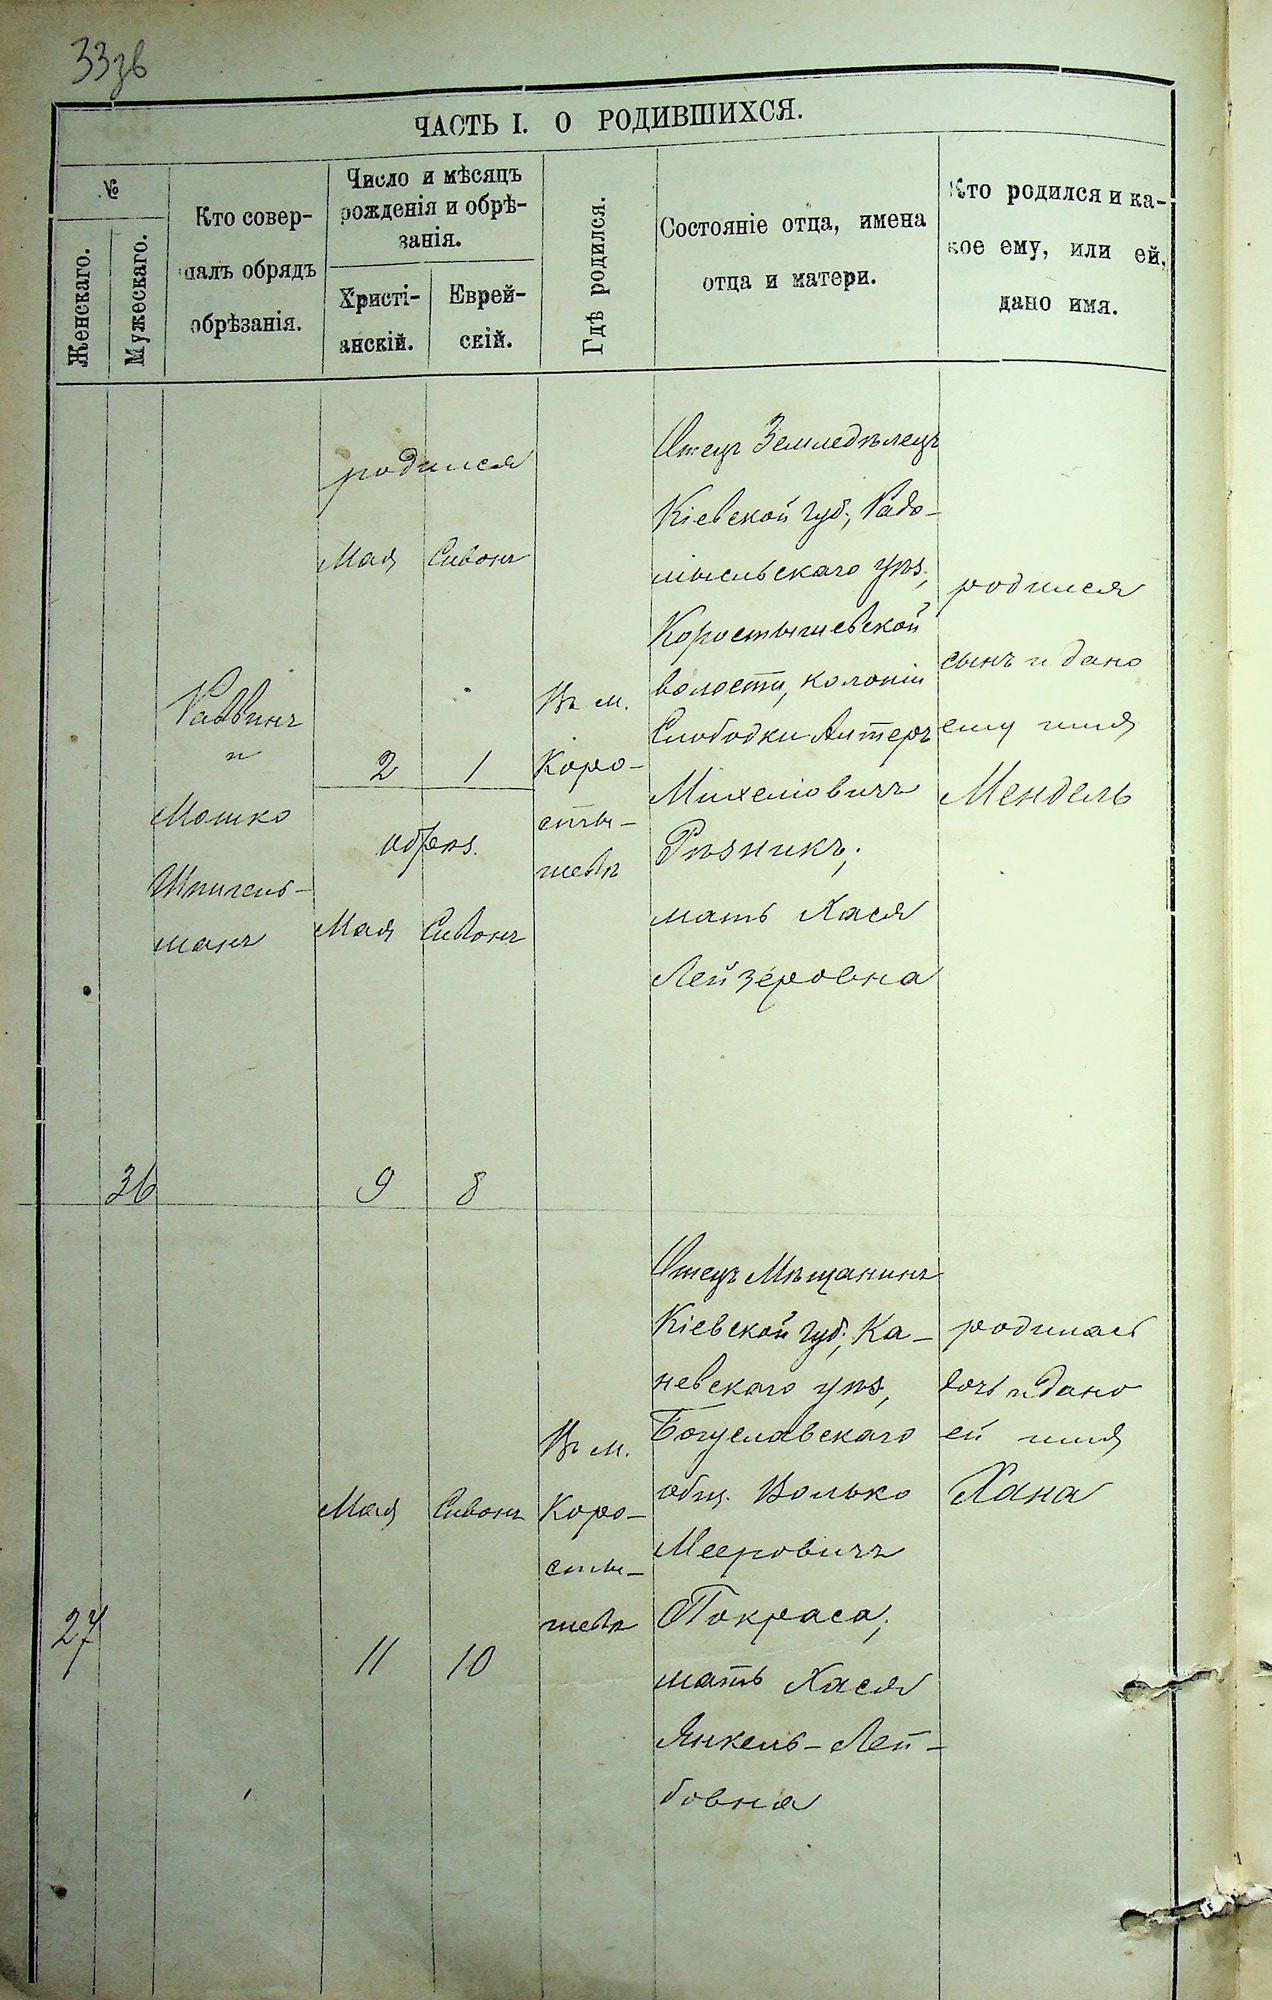 33зв
ЧАСТЬ I. О РОДИВШИХСЯ.
№
Женскаго.
Мужескаго.
Кто совер-
шалъ обрядъ
обрѣзанія.
Число и мѣсяцъ
рожденія и обрѣ-
занія.
Христі-
анскій.
Еврей-
скій.
Гдѣ родился.
Состояніе отца, имена
отца и матери.
Кто родился и ка-
кое ему, или ей,
дано имя.
36
Раввинъ
и
Мошко
Шпигель-
манъ
родился
Мая Сивонъ
2 1
обрѣз.
Мая Сивонъ
9 8
Въ м.
Коро-
сты-
шевѣ
Отецъ Земледѣлецъ
Кіевской губ., Радо-
мысльскаго уѣз.,
Коростышевской
волости, колоніи
Слободки Алтеръ
Михелiовичъ
Рѣзникъ;
мать Хася
Лейзеровна
родился
сынъ и дано
ему имя
Мендель
27
Мая Сивонъ
11 10
Въ м.
Коро-
сты-
шевѣ
Отецъ Мѣщанинъ
Кіевской губ., Ка-
невскаго уѣз.,
Богуславскаго
общ. Волько
Мееровичъ
Покраса;
мать Хася
Янкель-Лей-
бовна
родилась
дочь и дано
ей имя
Хана